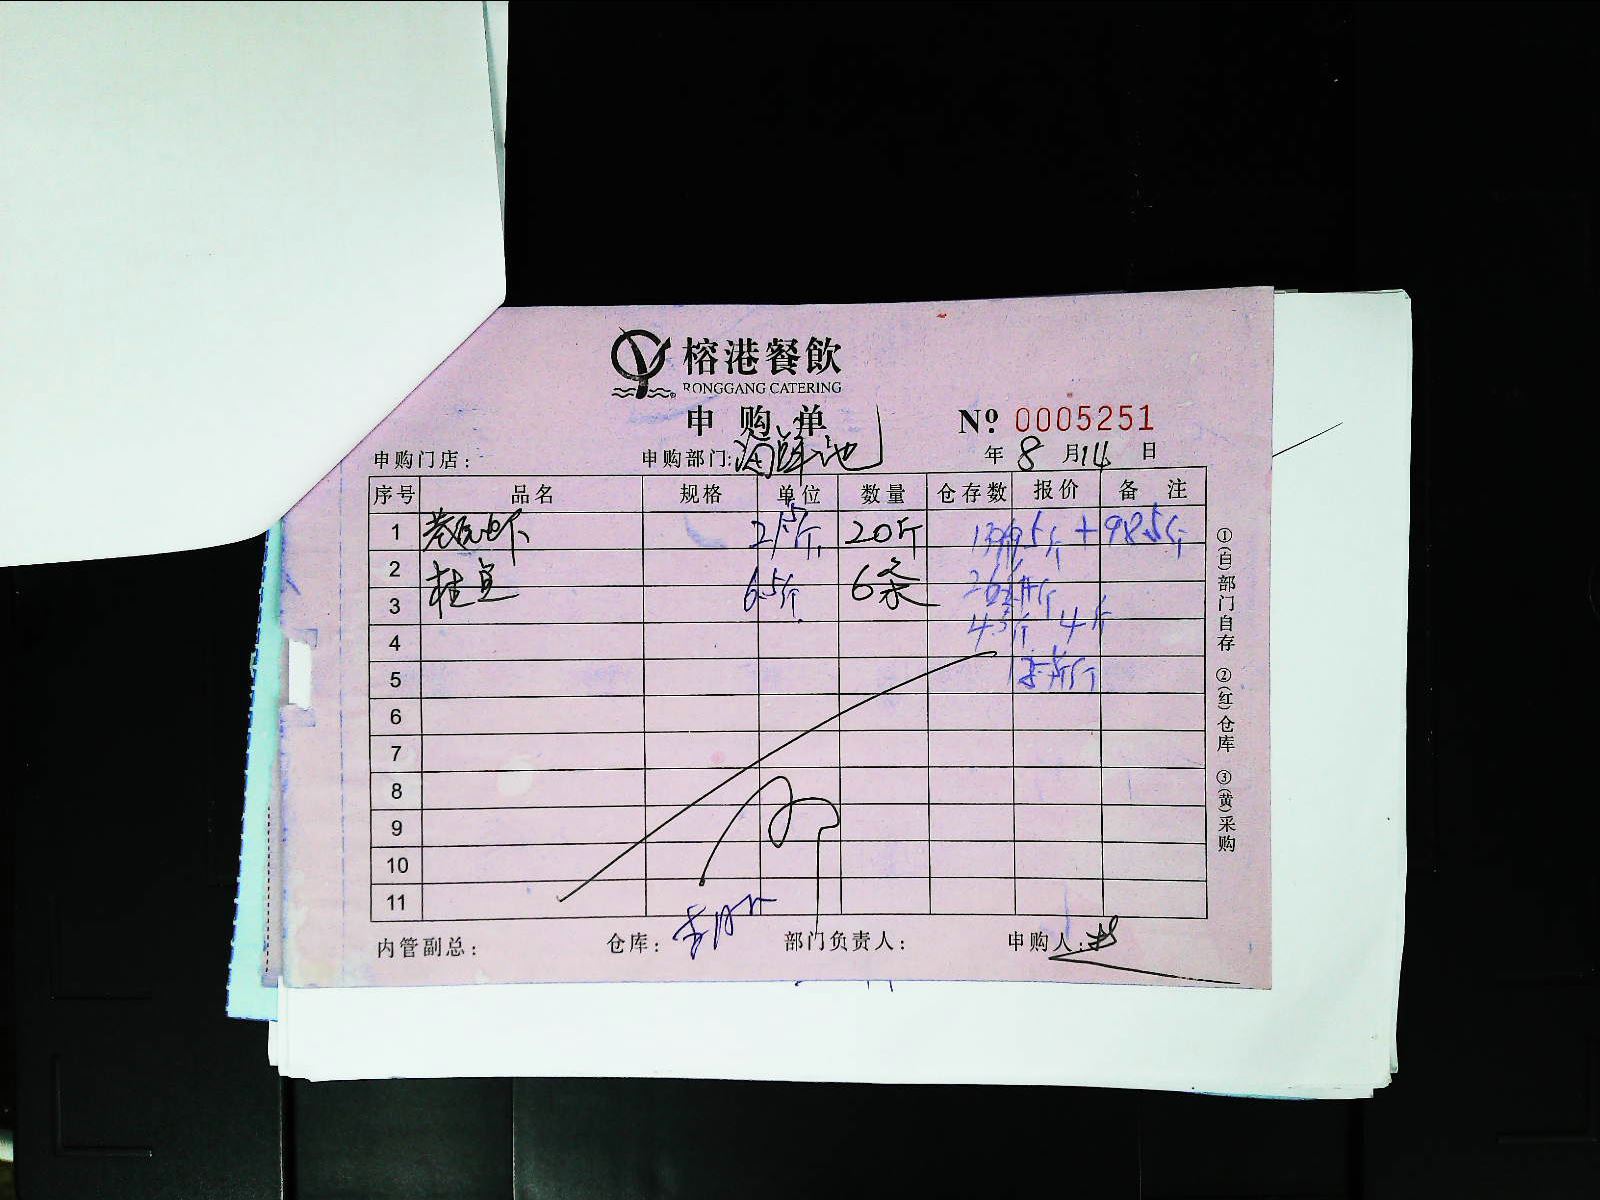 榕港餐飲
RONGGANG CATERING
申购单
№ 0005251
申购门店： 申购部门：海鲜池 年 8 月 14 日
序号 品名 规格 单位 数量 仓存数 报价 备注
1 20斤 98.5斤
2 桂鱼 6.5斤 6条
3
4 4斤
5
6
7
8
9
10
11
内管副总： 仓库： 部门负责人： 申购人：
①(白)部门自存 ②(红)仓库 ③(黄)采购